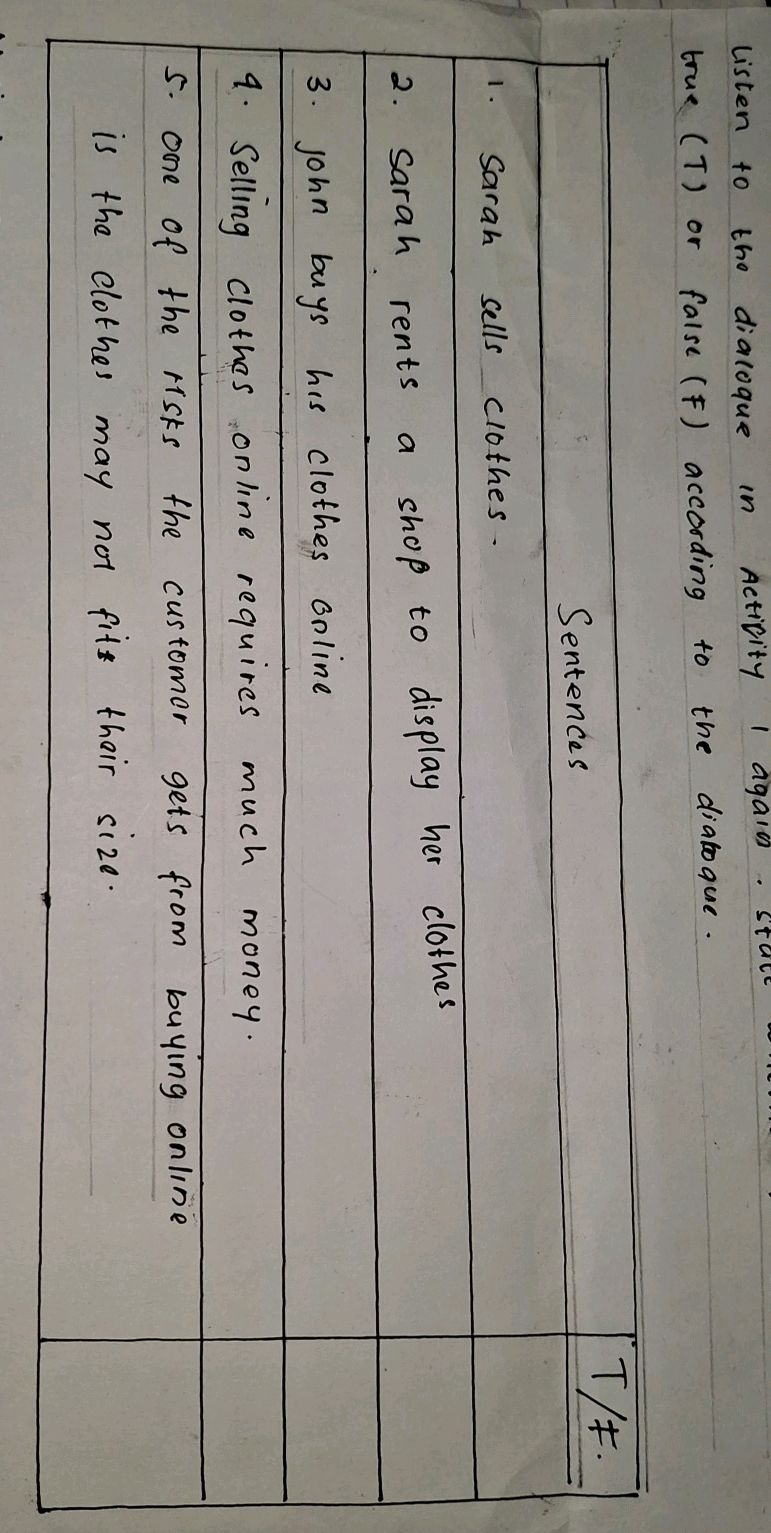 Listen to the dialogue in Activity 1 again. State
true (T) or false (F) according to the dialogue.
Sentences T/F.
1. Sarah sells clothes.
2. Sarah rents a shop to display her clothes
3. john buys his clothes online
4. Selling clothes online requires much money.
5. one of the risks the customer gets from buying online
is the clothes may not fit their size.